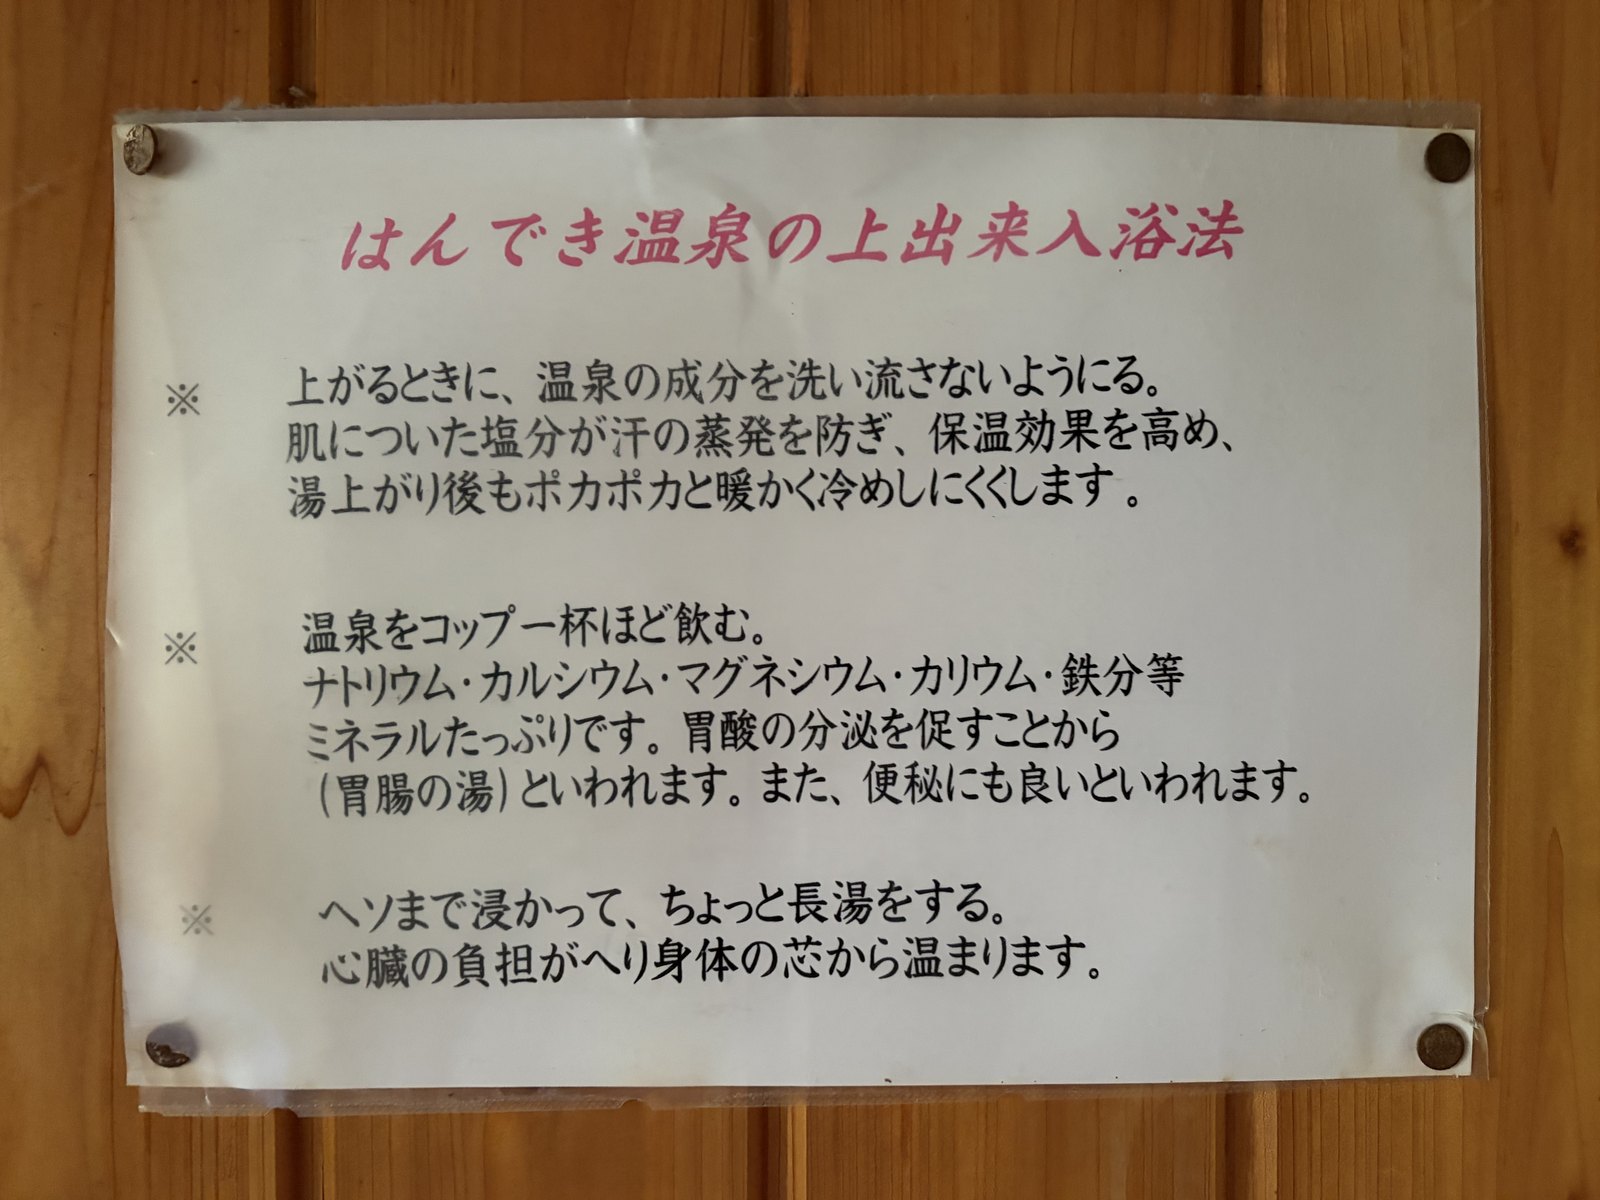 はんでき温泉の上出来入浴法
※ 上がるときに、温泉の成分を洗い流さないようにる。
肌についた塩分が汗の蒸発を防ぎ、保温効果を高め、
湯上がり後もポカポカと暖かく冷めしにくくします。
※ 温泉をコップ一杯ほど飲む。
ナトリウム・カルシウム・マグネシウム・カリウム・鉄分等
ミネラルたっぷりです。胃酸の分泌を促すことから
(胃腸の湯)といわれます。また、便秘にも良いといわれます。
※ ヘソまで浸かって、ちょっと長湯をする。
心臓の負担がへり身体の芯から温まります。